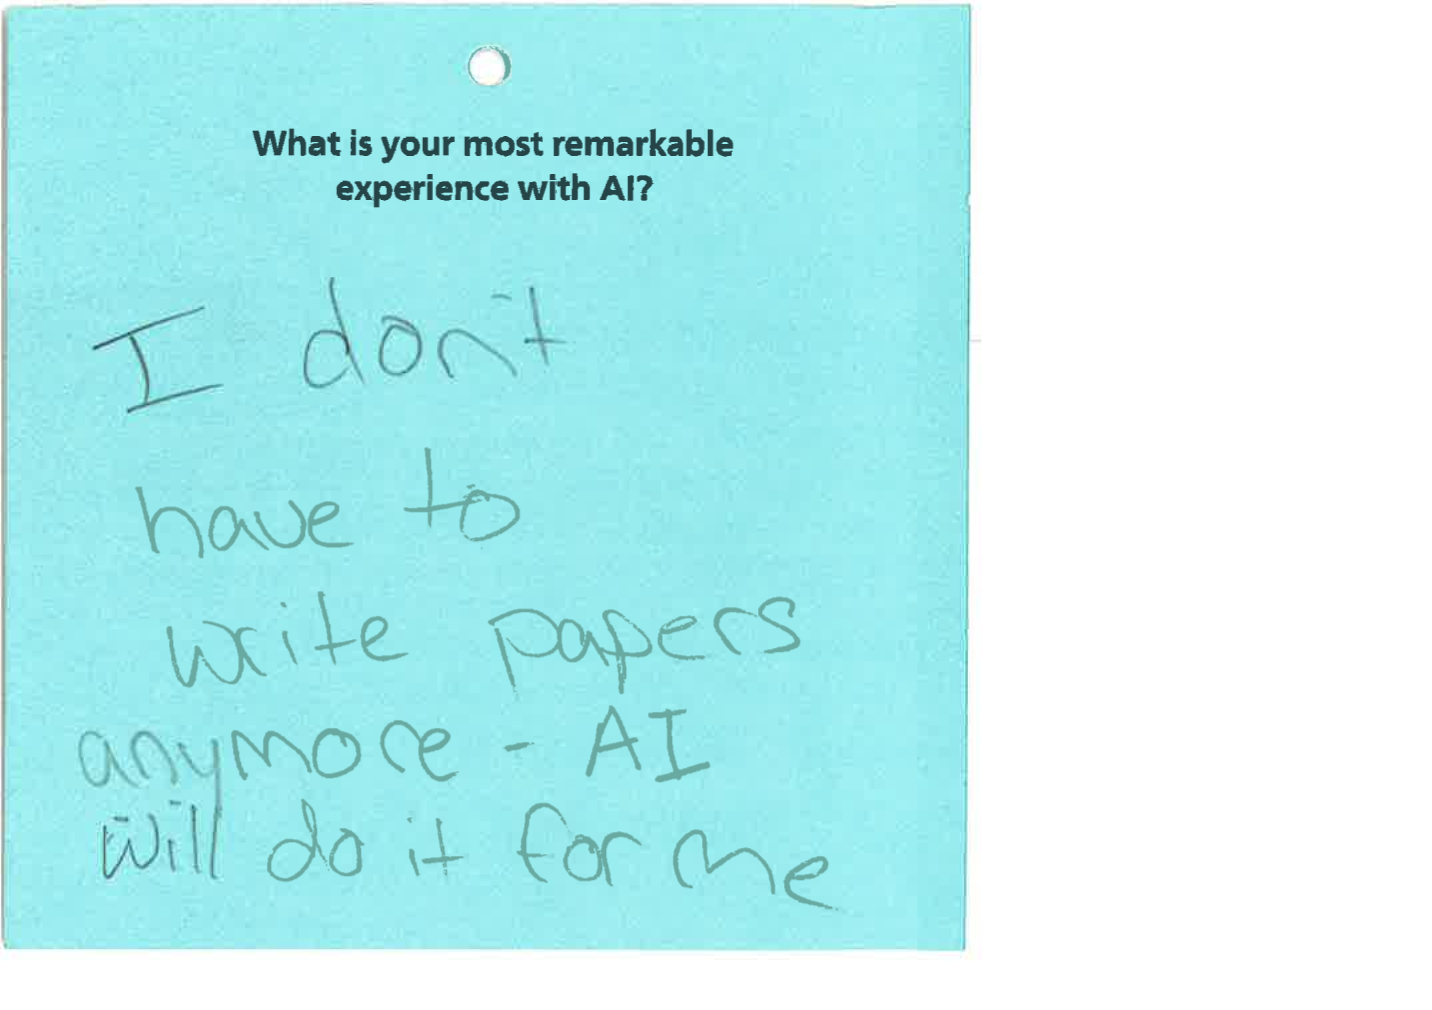 What is your most remarkable
experience with AI?
I don't
have to
write papers
anymore - AI
will do it for me